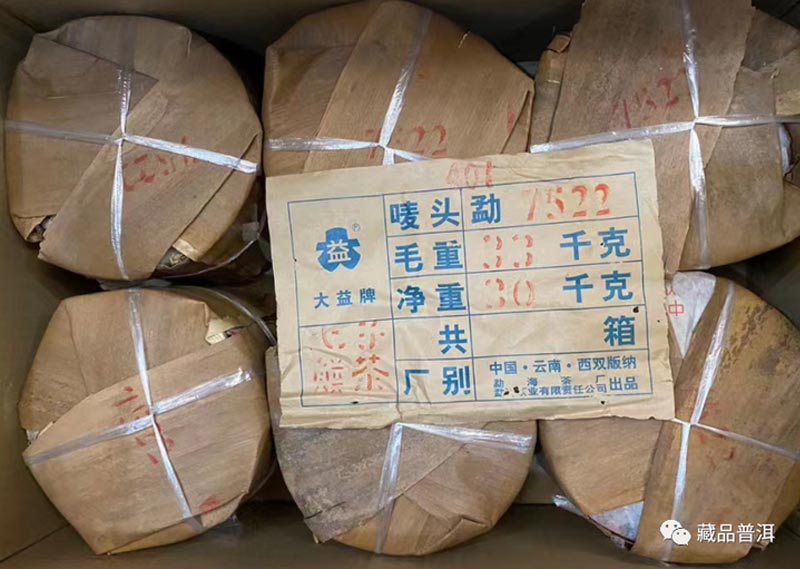 7522
7522
401
唛头 勐 7522
毛重 33 千克
净重 30 千克
共 箱
厂别
益
®
大益牌
七子
饼茶
中国·云南·西双版纳
勐海茶厂
业有限责任公司出品
藏品普洱